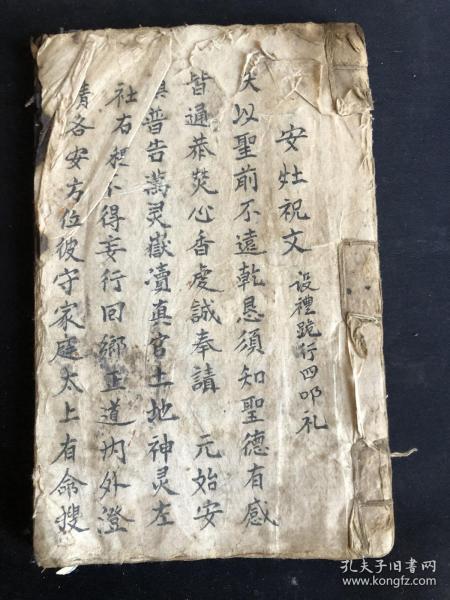 安灶祝文 設禮跪行四叩礼
夫以聖前不遠乾恳須知聖德有感
皆通恭焚心香虔誠奉請 元始安
普告萬灵嶽瀆真官土地神灵左
社右稷不得妄行回鄉正道內外澄
清各安方位彼守家庭太上有命搜
孔夫子旧书网
www.kongfz.com